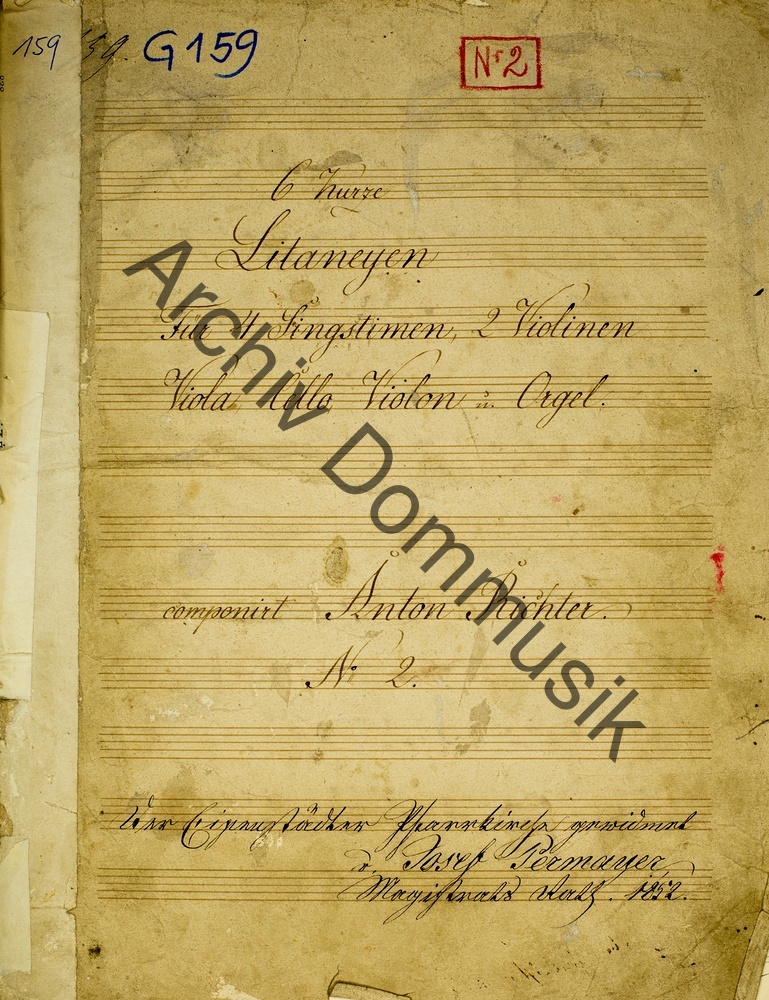 159 159. G 159
Nr 2
6 kurze
Litaneyen
Für 4 Singstimen, 2 Violinen
Viola Cello Violon u. Orgel.
componirt Anton Richter.
No 2.
Der Eisenstädter Pfarrkirche gewidmet
v. Josef Permayer,
Magistrats Rath. 1852.
Archiv Dommusik